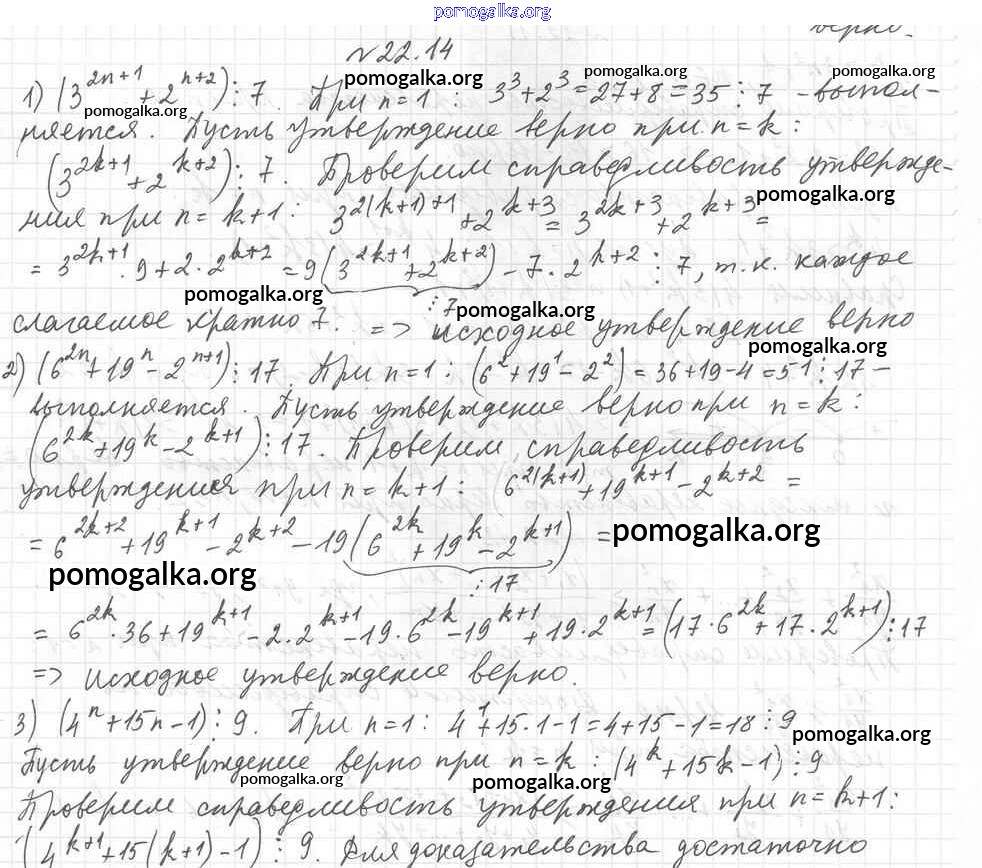 pomogalka.org
верно.
№22.14
pomogalka.org pomogalka.org pomogalka.org
1) (3^{2n+1} + 2^{n+2}) ⋮ 7. При n=1: 3^3+2^3=27+8=35 ⋮ 7 - выпол-
pomogalka.org
няется. Пусть утверждение верно при n=k:
(3^{2k+1} + 2^{k+2}) ⋮ 7. Проверим справедливость утвержде-
pomogalka.org
ния при n=k+1: 3^{2(k+1)+1} + 2^{k+3} = 3^{2k+3} + 2^{k+3} =
= 3^{2k+1}·9+2·2^{k+2} = 9(3^{2k+1} + 2^{k+2}) - 7·2^{k+2} ⋮ 7, т.к. каждое
pomogalka.org ⋮7 pomogalka.org
слагаемое кратно 7. => исходное утверждение верно
pomogalka.org
2) (6^{2n}+19^n-2^{n+1}) ⋮ 17. При n=1: (6^2+19^1-2^2)=36+19-4=51 ⋮ 17 -
выполняется. Пусть утверждение верно при n=k:
(6^{2k}+19^k-2^{k+1}) ⋮ 17. Проверим справедливость
утверждения при n=k+1: (6^{2(k+1)}+19^{k+1}-2^{k+2} =
= 6^{2k+2}+19^{k+1}-2^{k+2}-19(6^{2k}+19^k-2^{k+1}) = pomogalka.org
pomogalka.org ⋮17
= 6^{2k}·36+19^{k+1}-2·2^{k+1}-19·6^{2k}-19^{k+1}+19·2^{k+1}=(17·6^{2k}+17·2^{k+1}) ⋮ 17
=> исходное утверждение верно.
3) (4^n+15n-1) ⋮ 9. При n=1: 4^1+15·1-1=4+15-1=18 ⋮ 9
pomogalka.org
Пусть утверждение верно при n=k: (4^k+15k-1) ⋮ 9
pomogalka.org pomogalka.org
Проверим справедливость утверждения при n=k+1:
(4^{k+1}+15(k+1)-1) ⋮ 9. Для доказательства достаточно